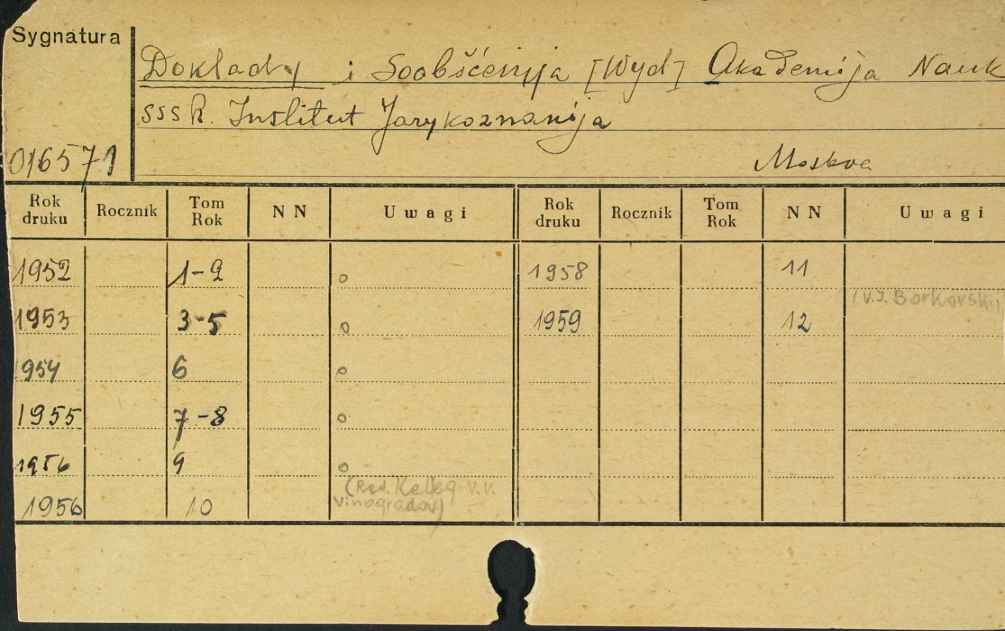 Sygnatura
Doklady i Soobščenija [Wyd] Akademija Nauk
SSSR. Institut Jazykoznanija
016571
Moskva
Rok druku Rocznik Tom Rok N N Uwagi Rok druku Rocznik Tom Rok N N Uwagi
1952 1-2 o 1958 11
(V.I. Borkovskij
1953 3-5 o 1959 12
1954 6 o
1955 7-8 o
1956 9 o
(Red. Kolleg V.V.
1956 10 Vinogradov)